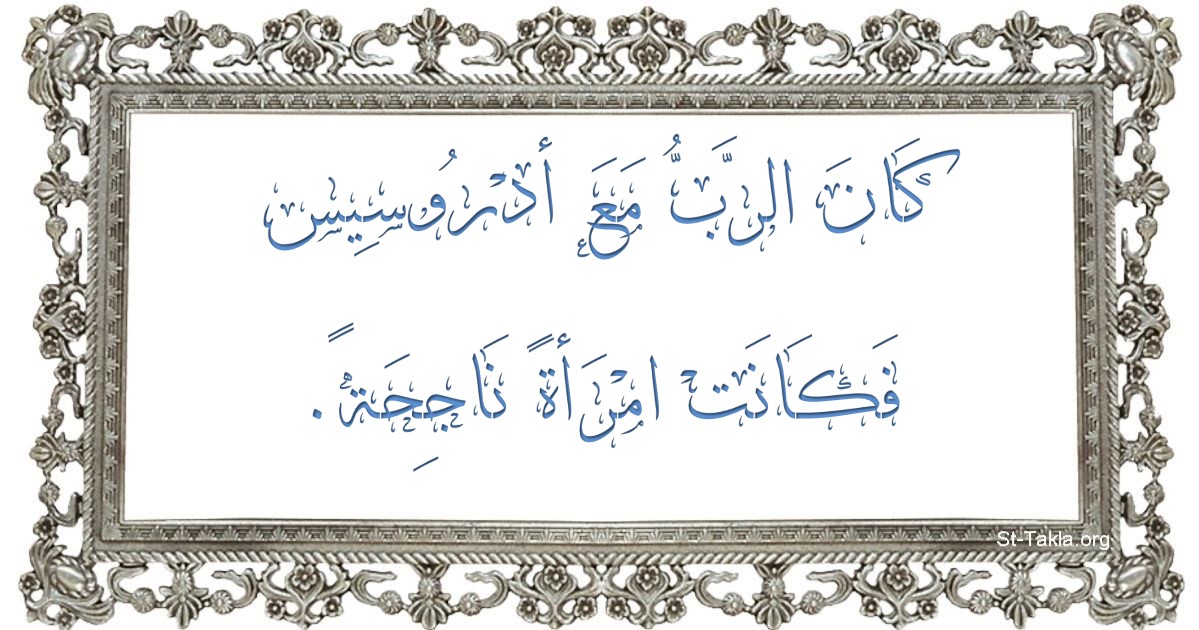 كَانَ الرَّبُّ مَعَ أدْرُوسِيس
فَكَانَتْ امْرَأةً نَاجِحَةً.
St-Takla.org